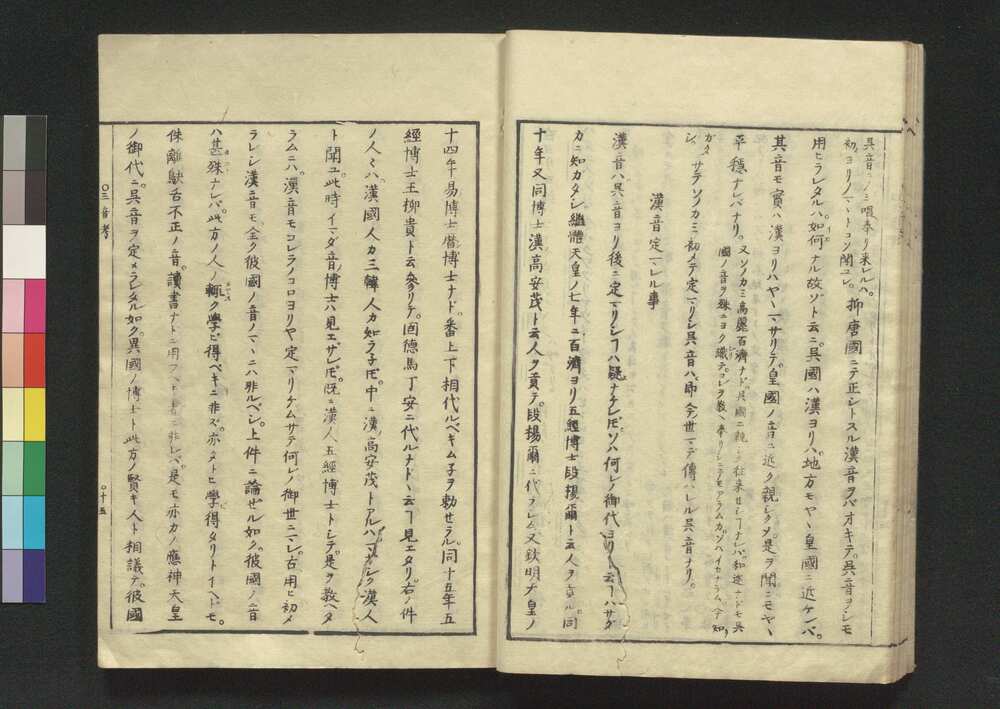 呉音ニノミ唱奉リ来レルハ。
初ヨリノマヽトコソ聞ユレ。抑唐國ニテ正シトスル漢音ヲバオキテ。呉音ヲシモ
用ヒラレタルハ如何ナル故ゾト云ニ。呉國ハ漢ヨリハ地方モヤヽ皇國ニ近ケレバ。
其音モ實ハ漢ヨリハヤヽマサリテ。皇國ノ音ニ近ク親シクゾ。是ヲ聞ニモヤヽ
平穏ナレバナリ。又ソノカミ高麗百濟ナド。呉國ニ親ク往来セシヿナレバ。和邇ナドモ呉
國ノ音ヲ殊ニヨク識テ。コレヲ教ヘ奉リシニテモアラムカ。ソハイカナラム。今知
ガタシ。サテソノカミ初メテ定マリシ呉音ハ。即今世マデ傳ハレル呉音ナリ。
漢音定マレル事
漢音ハ呉音ヨリ後ニ定マリシヿハ疑ナケレ𪜈。ソハ何レノ御代ヨリト云ヿハサダ
カニ知ガタシ。繼體天皇ノ七年ニ百濟ヨリ五經博士段揚爾ト云人ヲ貢ル。同
十年又同博士漢高安茂ト云人ヲ貢テ。段揚爾ニ代ラシム。又欽明天皇ノ
十四年易博士暦博士ナド。番上下相代ルベキムネヲ勅セラル。同十五年五
經博士王柳貴ト云參リテ。固德馬丁安ニ代ルナドヽ云ヿ見エタリ。右ノ件
ノ人々ハ。漢國人カ三韓人カ知ラネ𪜈。中ニ漢高安茂トアルハ。マサシク漢人
ト聞ユ。此時イマダ音博士ハ見エザレ𪜈。既ニ漢人五經博士トシテ。是ヲ教ヘタ
ラムニハ。漢音モコレラノコロヨリヤ定マリケム。サテ何レノ御世ニマレ。古用ヒ初メ
ラレシ漢音モ。全ク彼國ノ音ノマヽニハ非ルベシ。上件ニ論ゼル如ク。彼國ノ音
ハ甚殊ナレバ。此方ノ人ノ輙ク學ビ得ベキニ非ズ。亦タトヒ學得タリトイヘドモ。
侏離鴃舌不正ノ音。讀書ナドニ用フベキニ非レバ。是モ亦カノ應神天皇
ノ御代ニ。呉音ヲ定メラレタル如ク。異國ノ博士ト此方ノ賢キ人ト相議テ。彼國
〇三音考
〇十五